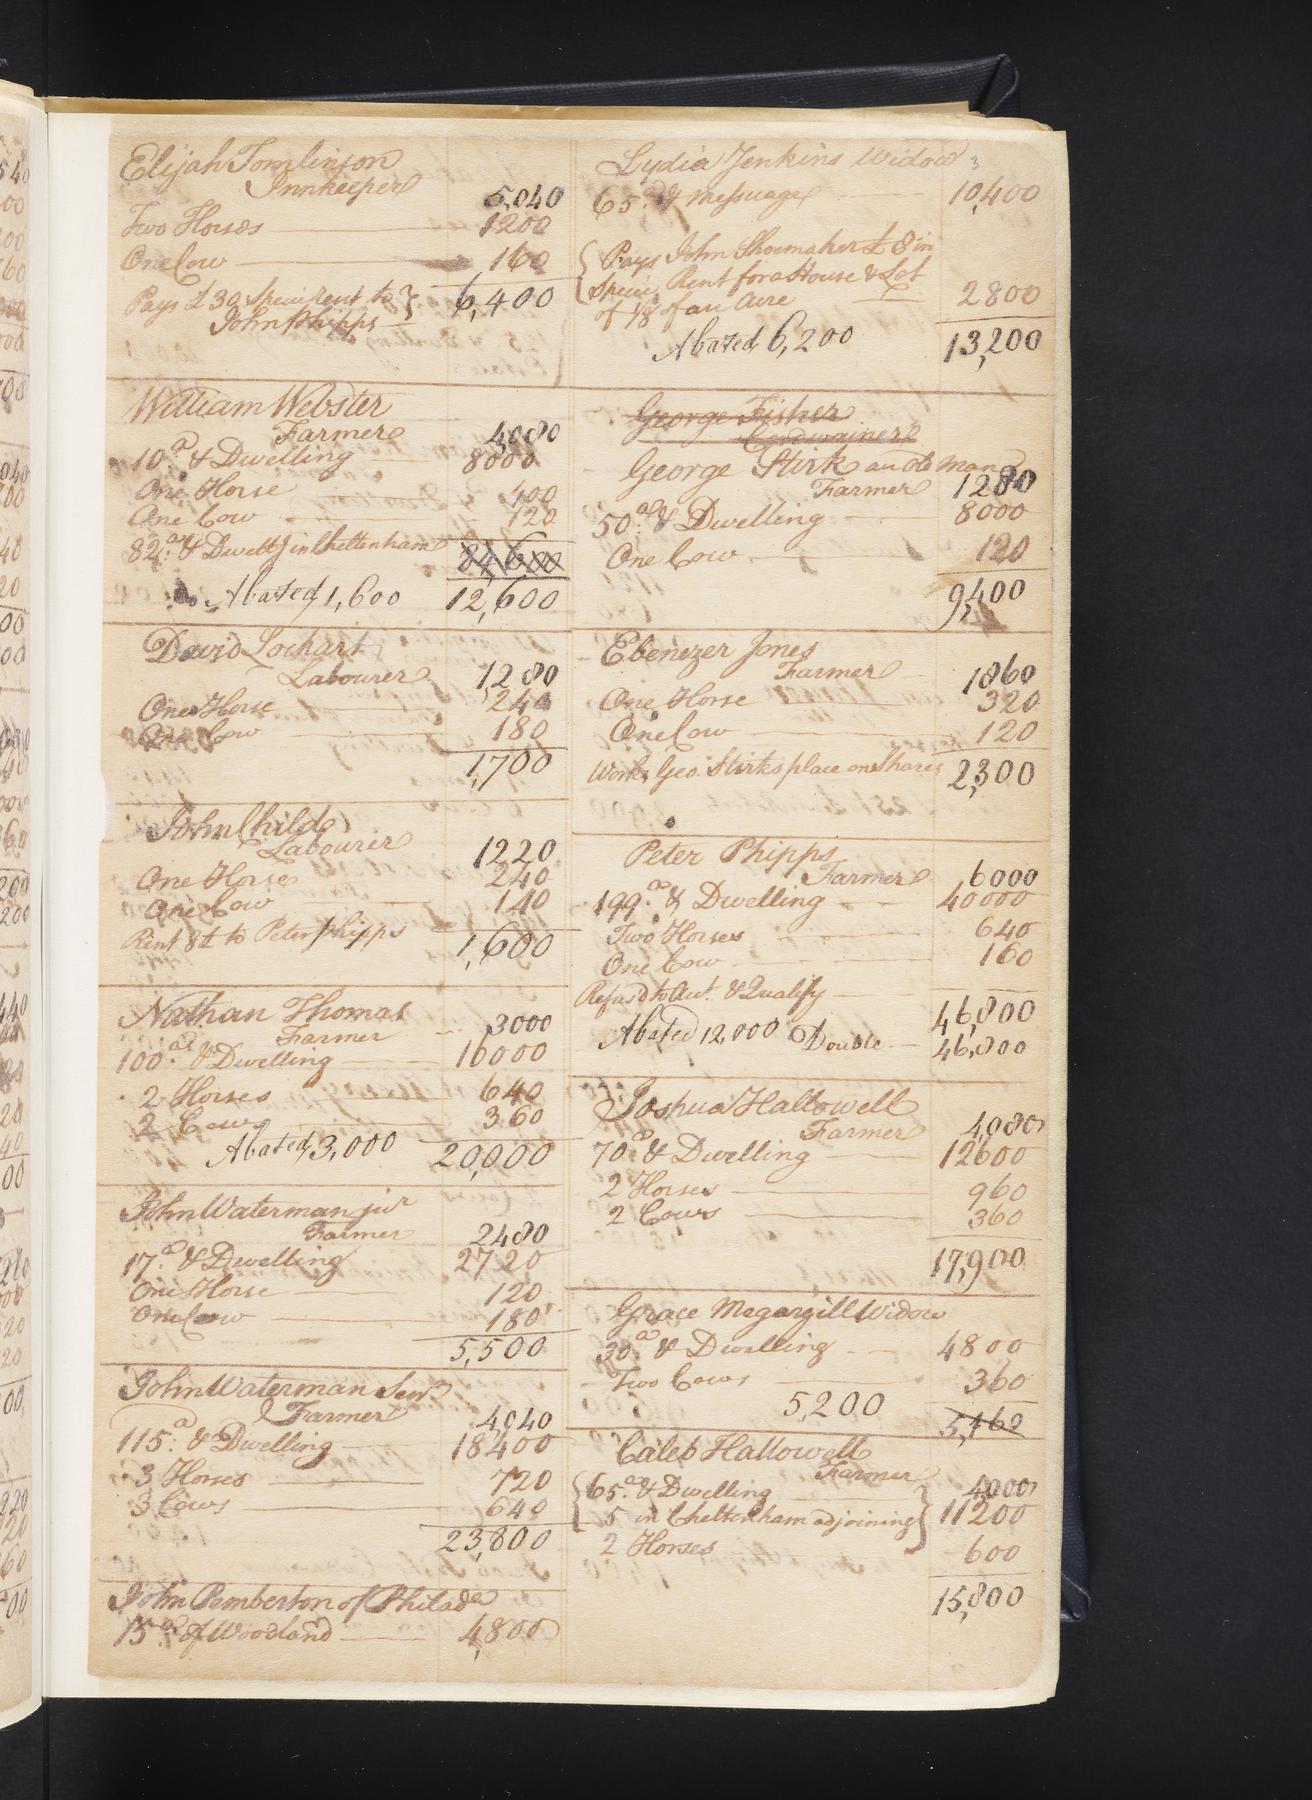 Elijah Tomlinson
Innkeeper 5,040
Two Horses 1200
One Cow 160
Pays £30 Specie rent to 6,400
John Phipps
William Webster
Farmer 4080
10.a & Dwelling 8000
One Horse 400
One Cow 120
82.a & Dwellg in Cheltenham 84,600
Abated 1,600 12,600
David Lockart
Labourer 1,280
One Horse 240
One Cow 180
1,700
John Childs
Labourer 1220
One Horse 240
One Cow 140
Rent 8£ to Peter Phipps 1,600
Nathan Thomas
Farmer 3000
100.as & Dwelling 16000
2 Horses 640
2 Cows 360
Abated 3,000 20,000
John Waterman jur
Farmer 2480
17.a & Dwelling 2720
One Horse 120
One Cow 180
5,500
John Waterman Senr
Farmer 4,040
115.a & Dwelling 18400
3 Horses 720
3 Cows 640
23,800
John Pemberton of Philada
15.as of Woodland 4,800
Lydia Jenkins Widow 3
65.as & Messuage 10,400
Pays John Shoemaker £8 in
Specie Rent for a House & Lot
of 1/8 of an Acre 2800
Abated 6,200 13,200
George Fisher
Cordwainer
George Stirk an old man
Farmer 1280
50.as & Dwelling 8000
One Cow 120
9,400
Ebenezer Jones
Farmer 1860
One Horse 320
One Cow 120
Works Geo. Stirks place on Shares 2,300
Peter Phipps
Farmer 6000
199.as & Dwelling 40000
Two Horses 640
One Cow 160
Refus'd to Aut. & Qualify 46,800
Abated 12,000 Double 46,800
Joshua Hallowell
Farmer 4,080
70.as & Dwelling 12600
2 Horses 960
2 Cows 360
17,900
Grace Megargill Widow
30.as & Dwelling 4800
Two Cows 360
5,200 5,160
Caleb Hallowell
Farmer 4000
65.as & Dwelling
5 in Cheltenham adjoining 11200
2 Horses 600
15,800